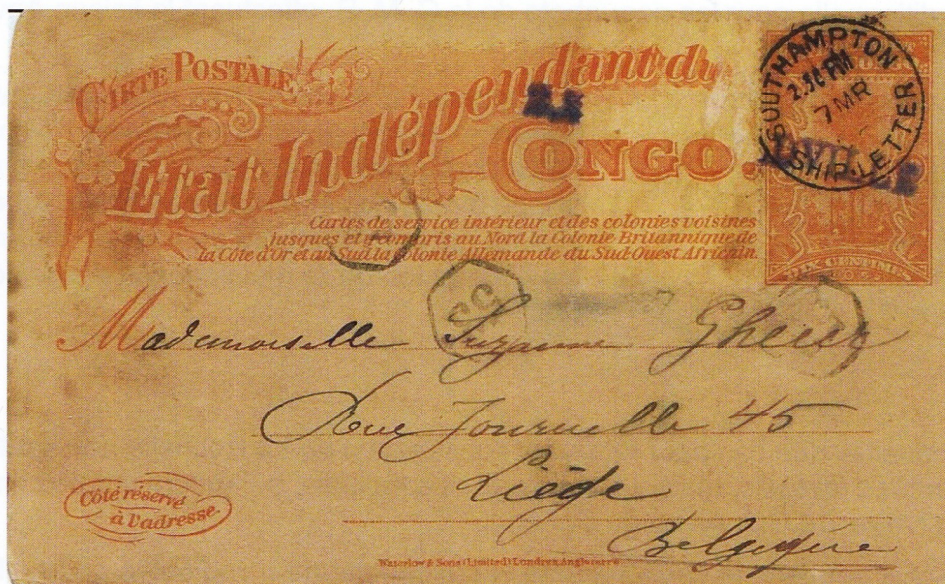 CARTE POSTALE
Etat Indépendant du
CONGO.
Cartes de service intérieur et des colonies voisines
jusques et y compris au Nord la Colonie Britannique de
la Côte d'Or et au Sud la Colonie Allemande du Sud-Ouest Africain.
SOUTHAMPTON
2.30 PM
7 MR
SHIP-LETTER
DIX CENTIMES
Mademoiselle Suzanne
Rue 45
Liège
Belgique
Côté réservé
à l'adresse.
Waterlow & Sons (Limited) Londres, Angleterre